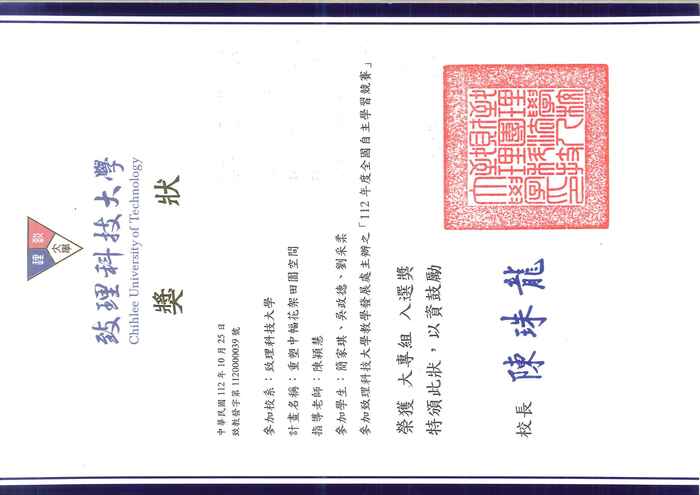 致理
大學
致理科技大學
Chihlee University of Technology
獎狀
中華民國 112 年 10 月 25 日
致教發字第 1120000039 號
參加校系：致理科技大學
計畫名稱：重塑中輻花架田園空間
指導老師：陳穎慧
參加學生：簡家琪、吳政德、劉采柔
參加致理科技大學教學發展處主辦之「112 年度全國自主學習競賽」
榮獲 大專組 入選獎
特頒此狀，以資鼓勵
校長 陳珠龍